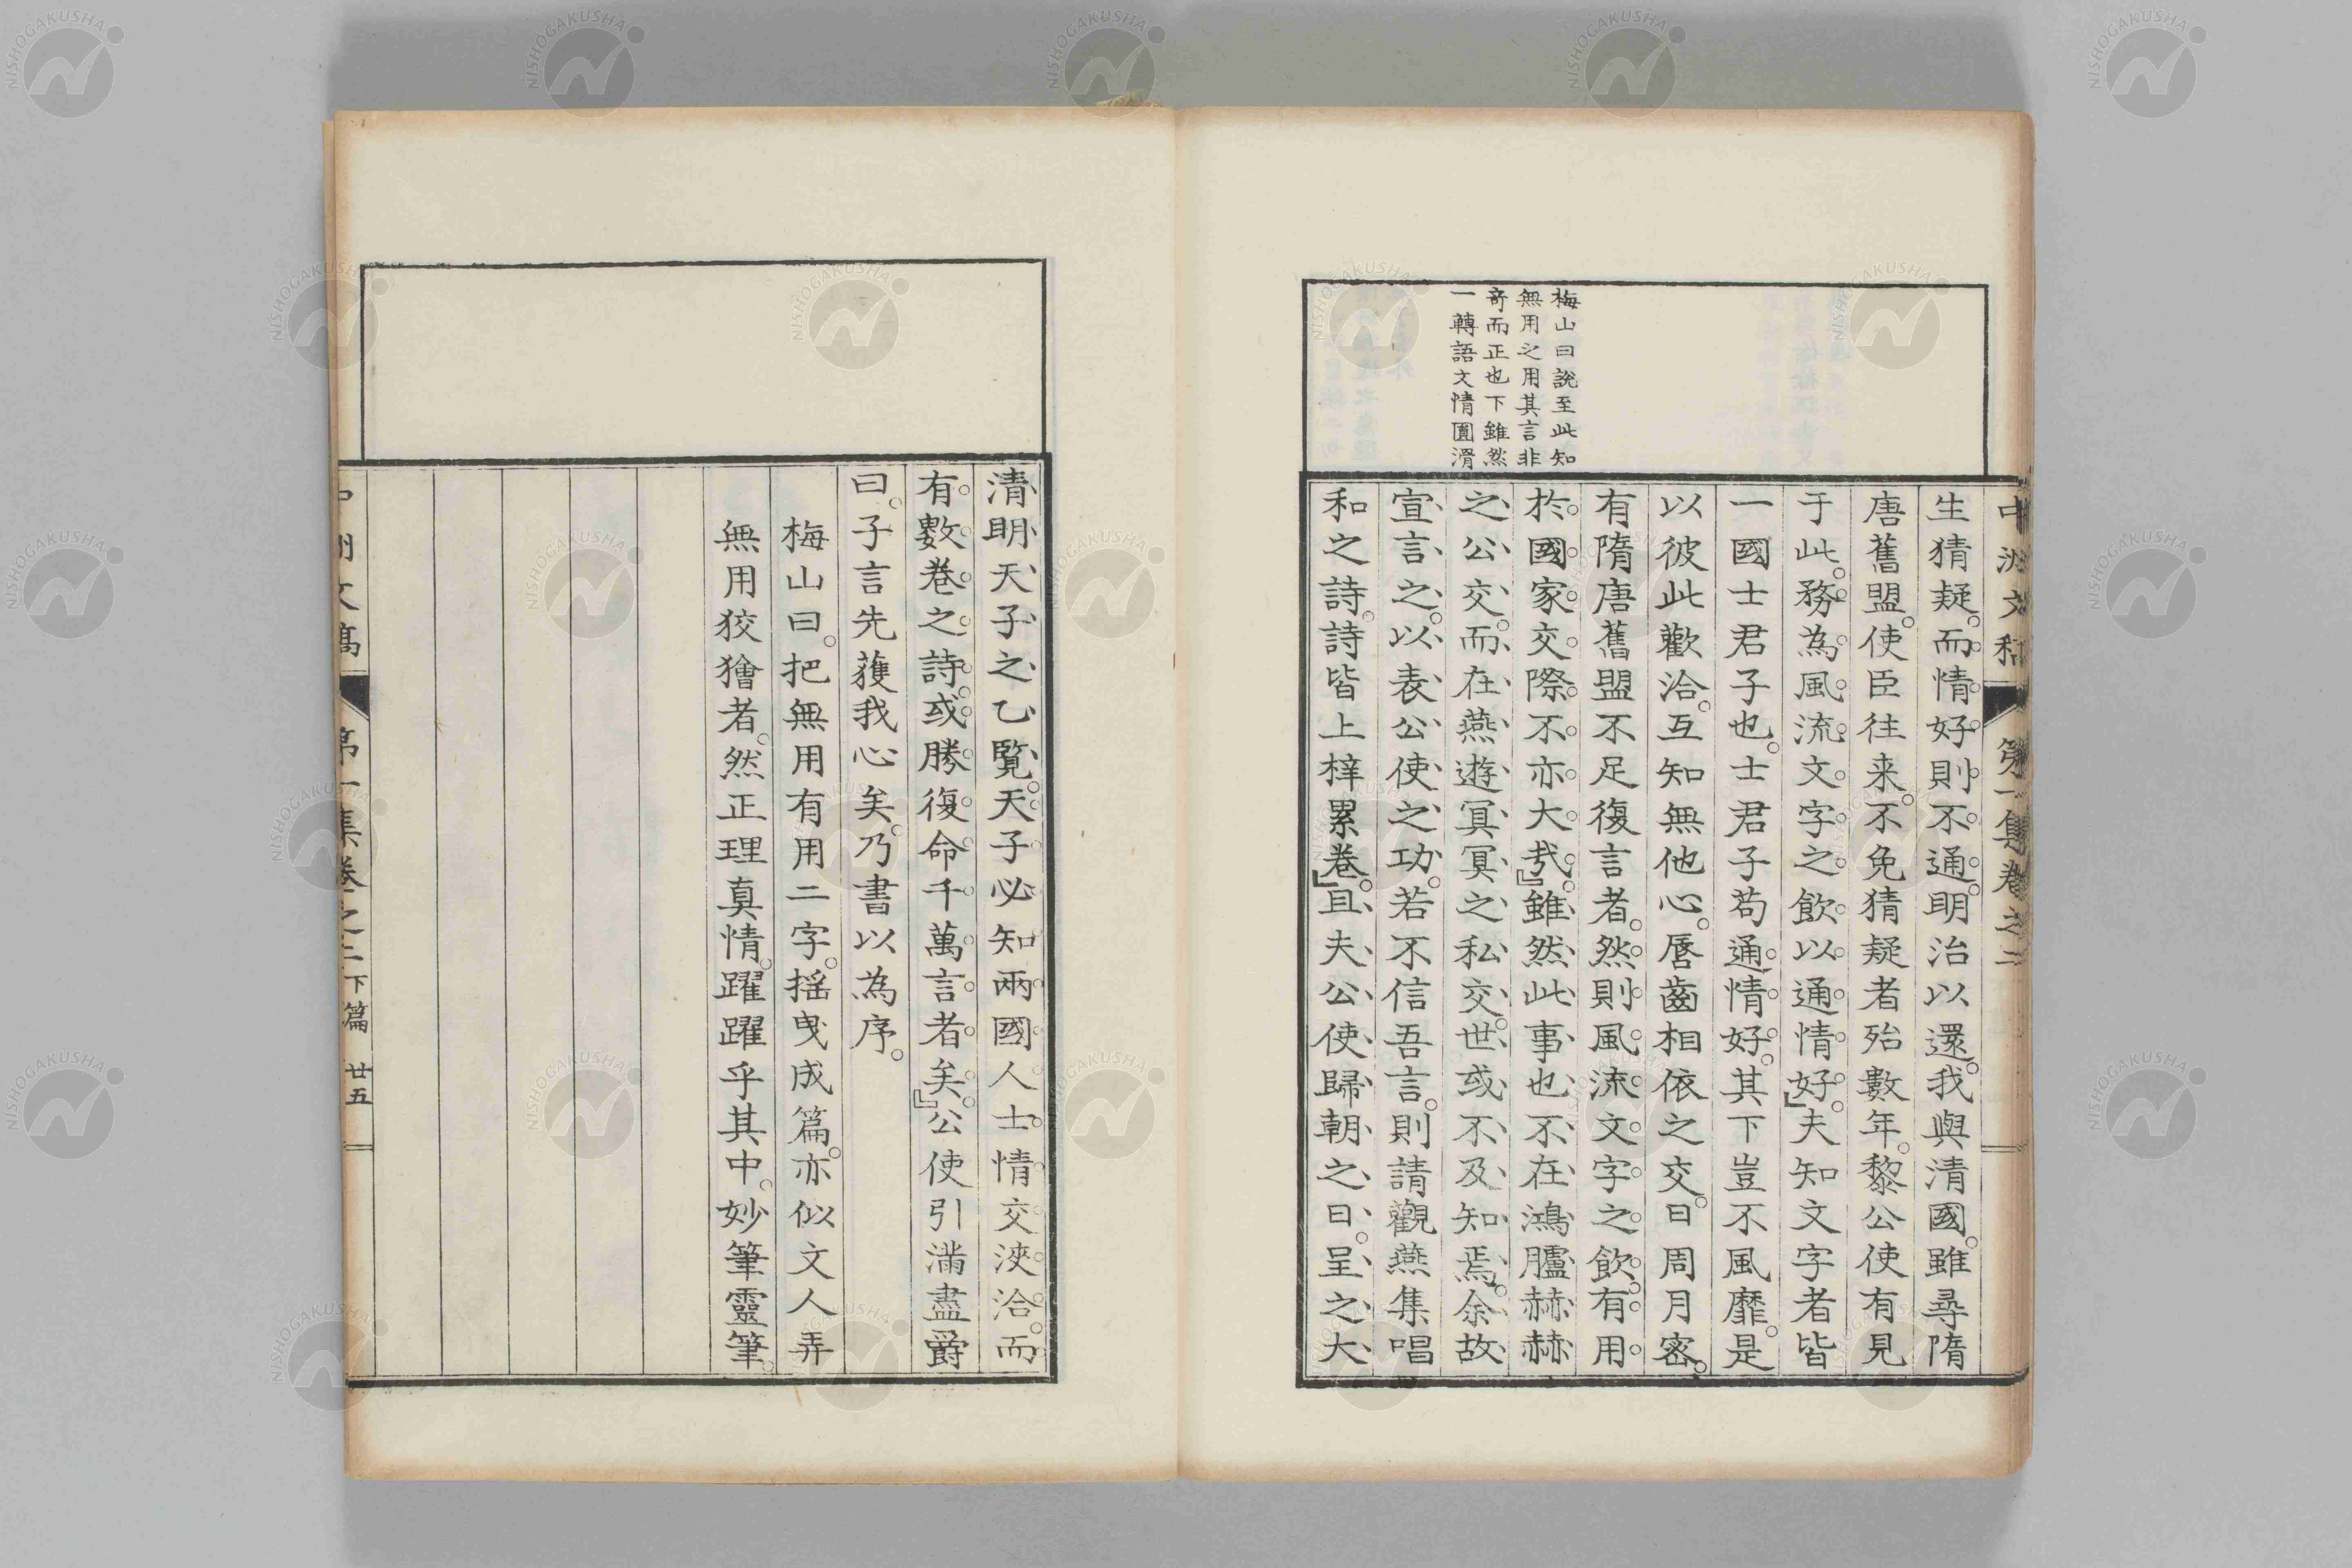 中洲文稿 第一集卷之二
梅山曰說至此知
無用之用其言非
奇而正也下雖然
一轉語文情圓滑
生猜疑。而情好則不通。明治以還。我與清國。雖尋隋
唐舊盟。使臣往来。不免猜疑者殆數年。黎公使有見
于此。務為風流文字之飲。以通情好。』夫知文字者皆
一國士君子也。士君子苟通情好。其下豈不風靡。是
以彼此歡洽。互知無他心。唇齒相依之交。日周月密。
有隋唐舊盟不足復言者。然則風流文字之飲。有用
於國家交際。不亦大哉。』雖然此事也不在鴻臚赫赫
之公交。而在燕遊冥冥之私交。世或不及知焉。余故
宣言之。以表公使之功。若不信吾言。則請觀燕集唱
和之詩。詩皆上梓累卷。』且夫公使歸朝之日。呈之大
清明天子之乙覽。天子必知兩國人士情交浹洽。而
有數卷之詩。或勝復命千萬言者矣。』公使引滿盡爵
曰。子言先蒦我心矣。乃書以為序。
梅山曰。把無用有用二字。搖曳成篇。亦似文人弄
無用狡獪者。然正理真情。躍躍乎其中。妙筆靈筆。
中洲文稿 第一集卷之二下篇 廿五
NISHOGAKUSHA